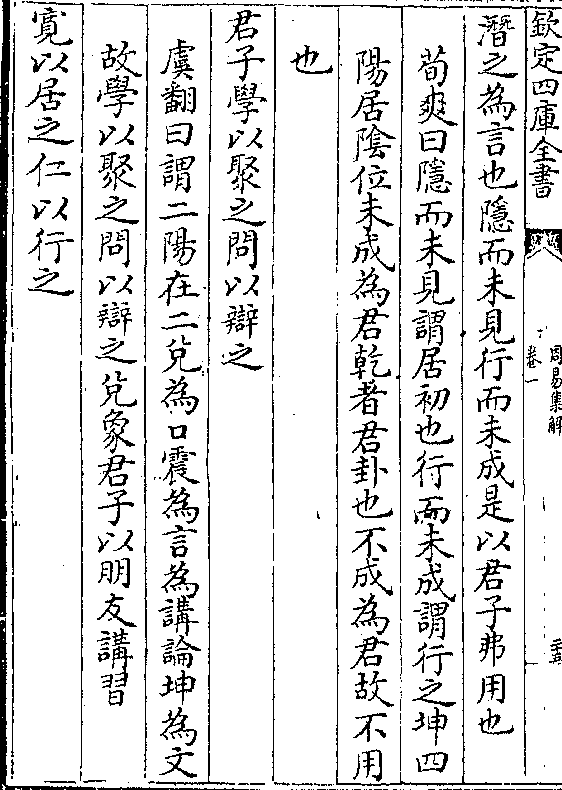 欽定四庫全書
周易集解
卷一
潛之為言也隱而未見行而未成是以君子弗用也
荀爽曰隱而未見謂居初也行而未成謂行之坤四
陽居陰位未成為君乾者君卦也不成為君故不用
也
君子學以聚之問以辯之
虞翻曰謂二陽在二兌為口震為言為講論坤為文
故學以聚之問以辯之兌象君子以朋友講習
寛以居之仁以行之